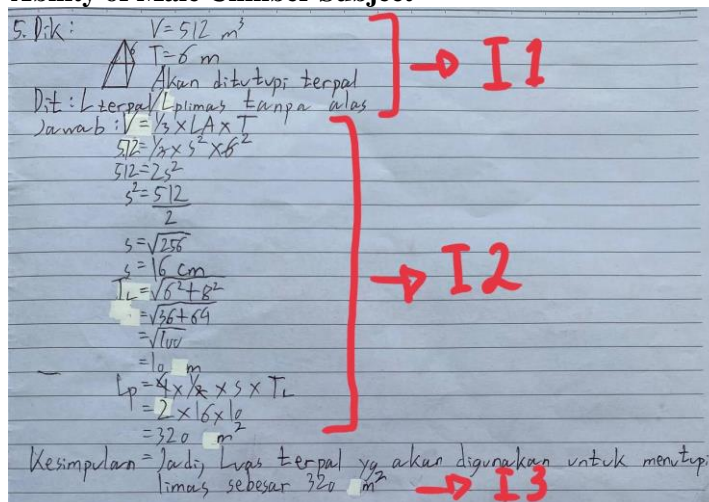 Ability of Male Climber Subject
5. Dik: V = 512 m³
6
T = 6 m
Akan ditutupi terpal
I1
Dit: L terpal / Lplimas tanpa alas
Jawab: V = 1/3 x LA x T
512 = 1/3 x s² x 6²
512 = 2s²
s² = 512
2
s = √256
s = 16 cm
I2
TL = √6² + 8²
= √36 + 64
= √100
= 10 m
Lp = 4 x 1/2 x s x TL
= 2 x 16 x 10
= 320 m²
Kesimpulan = Jadi, Luas terpal yg akan digunakan untuk menutupi
limas sebesar 320 m²
I3